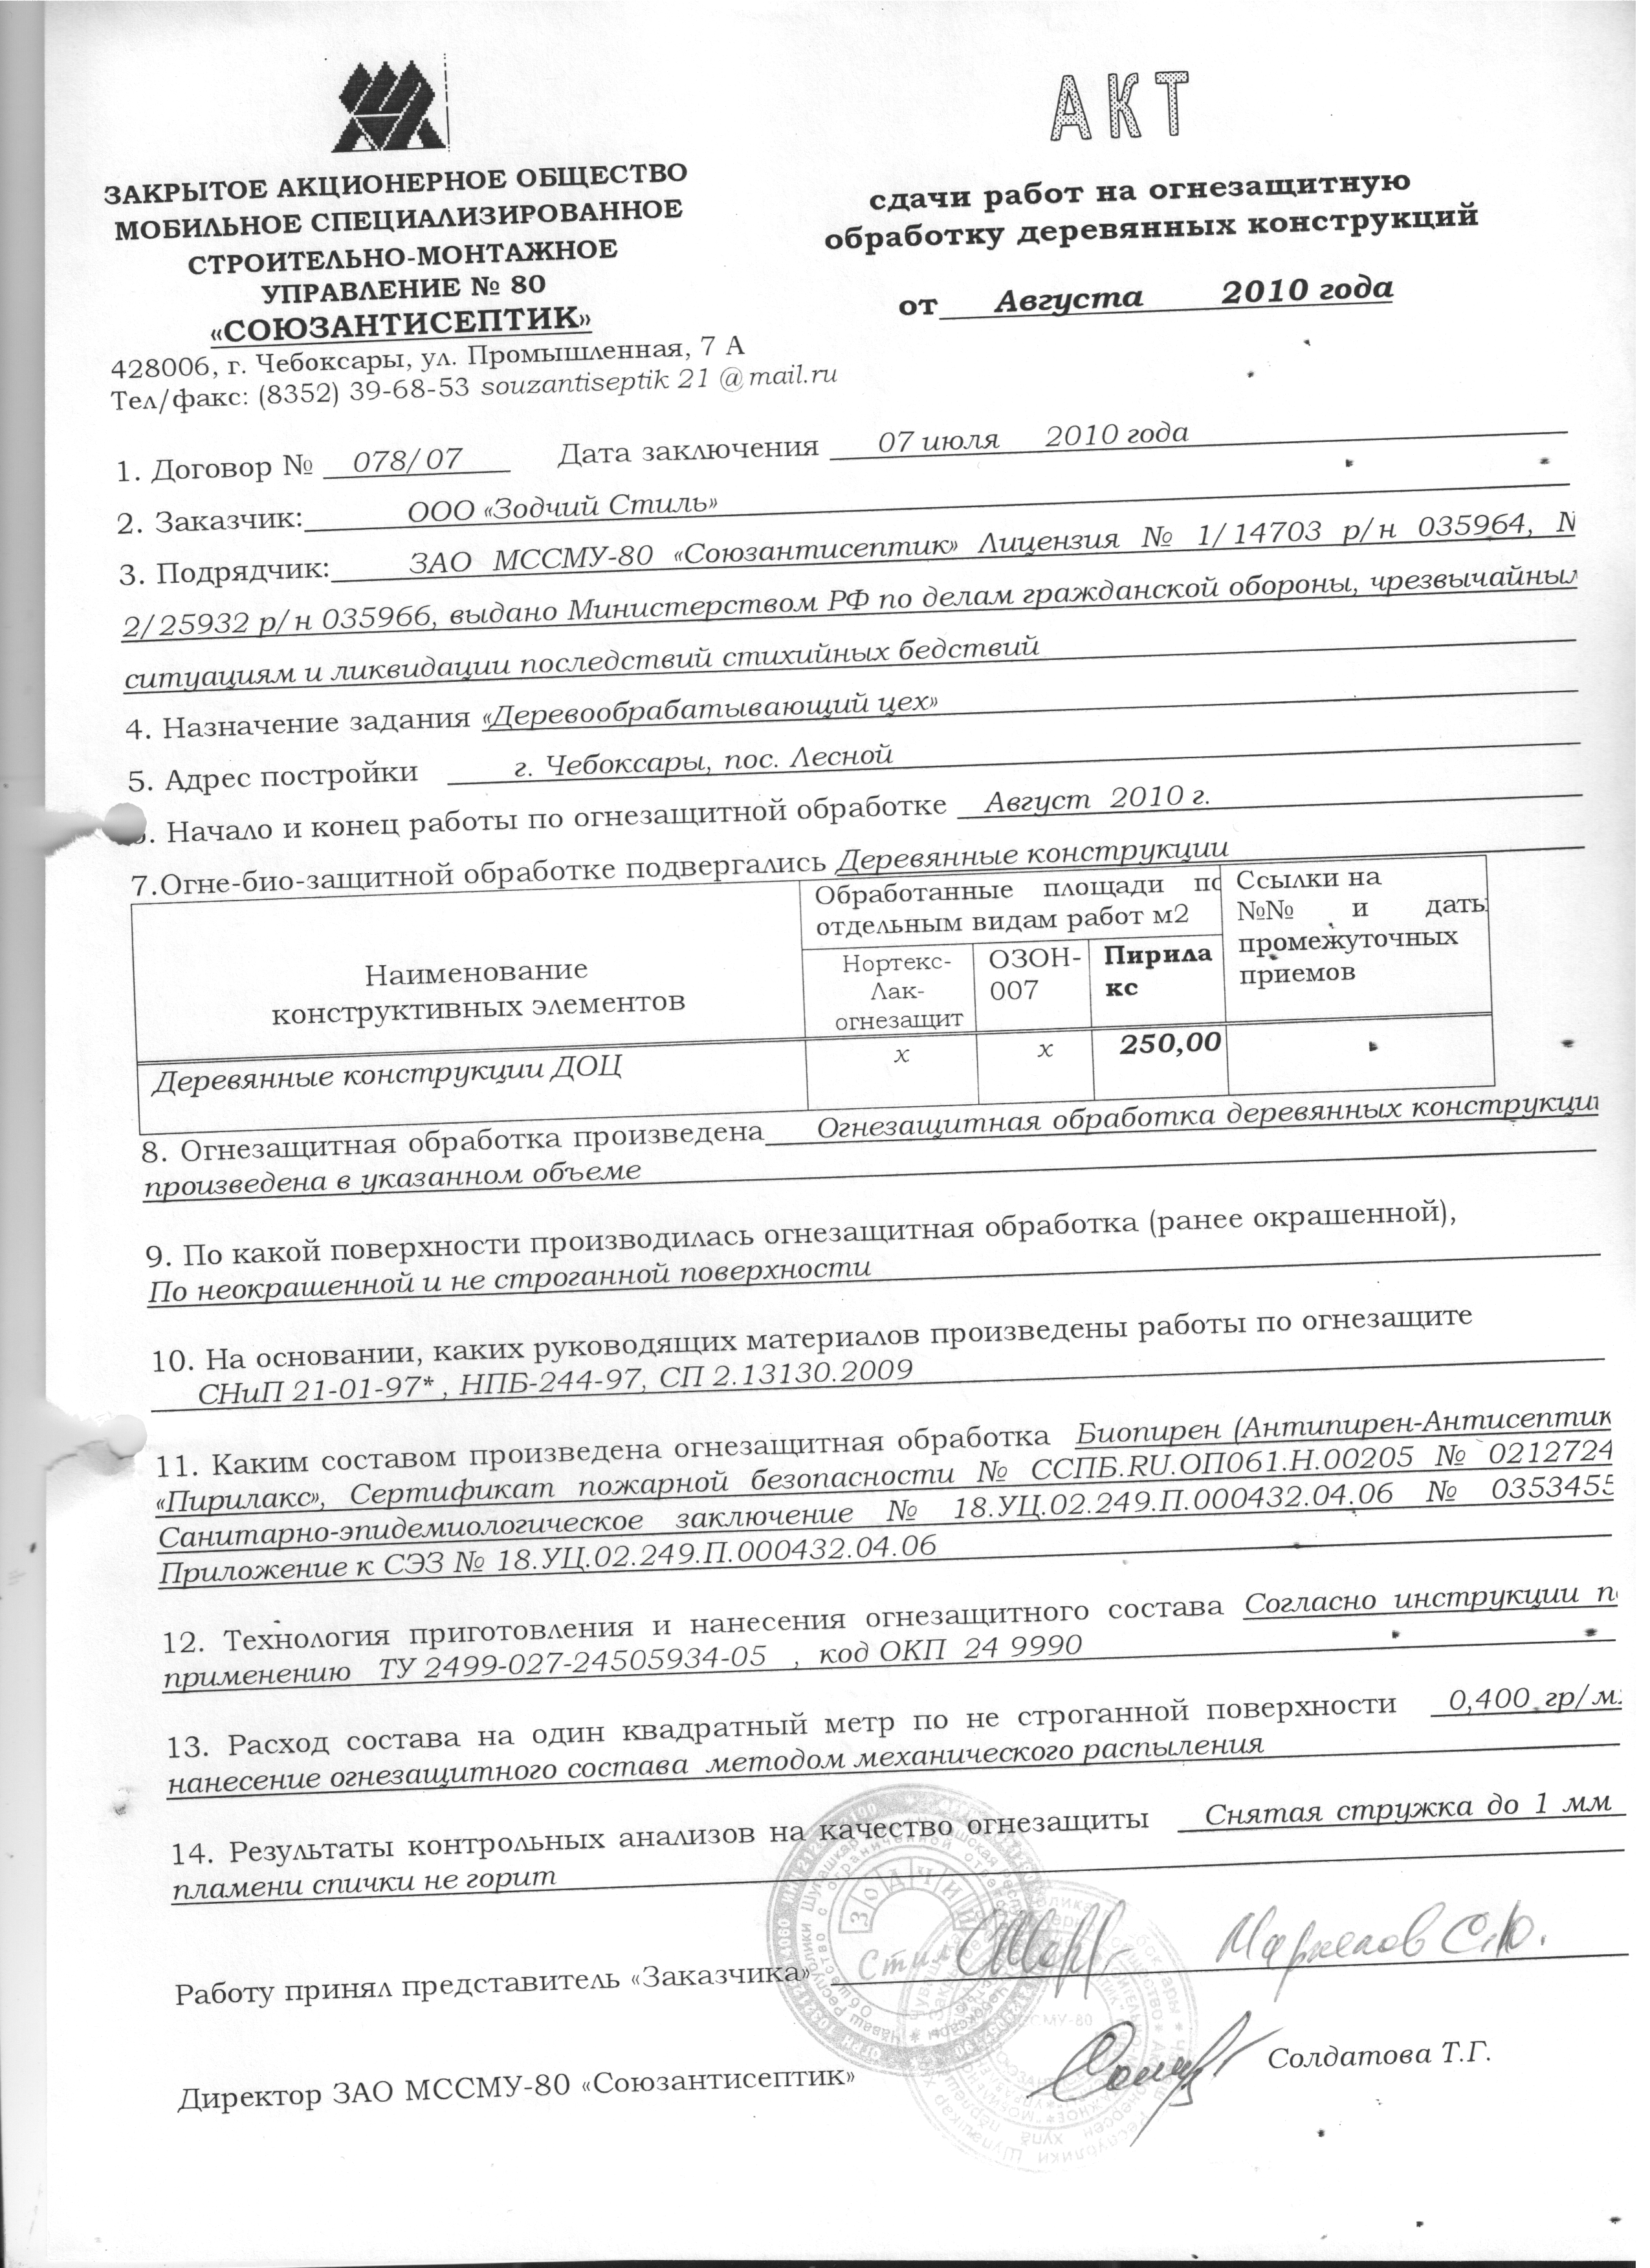 ЗАКРЫТОЕ АКЦИОНЕРНОЕ ОБЩЕСТВО
МОБИЛЬНОЕ СПЕЦИАЛИЗИРОВАННОЕ
СТРОИТЕЛЬНО-МОНТАЖНОЕ
УПРАВЛЕНИЕ № 80
«СОЮЗАНТИСЕПТИК»
428006, г. Чебоксары, ул. Промышленная, 7 А
Тел/факс: (8352) 39-68-53 souzantiseptik 21 @ mail.ru
АКТ
сдачи работ на огнезащитную
обработку деревянных конструкций
от Августа 2010 года
1. Договор № 078/07 Дата заключения 07 июля 2010 года
2. Заказчик: ООО «Зодчий Стиль»
3. Подрядчик: ЗАО МССМУ-80 «Союзантисептик» Лицензия № 1/14703 р/н 035964, №
2/25932 р/н 035966, выдано Министерством РФ по делам гражданской обороны,
ситуациям и ликвидации последствий стихийных бедствий
4. Назначение задания «Деревообрабатывающий цех»
5. Адрес постройки г. Чебоксары, пос. Лесной
. Начало и конец работы по огнезащитной обработке Август 2010 г.
7.Огне-био-защитной обработке подвергались Деревянные конструкции
Наименование
конструктивных элементов
Обработанные площади по
отдельным видам работ м2
Нортекс-
Лак-
огнезащит
ОЗОН-
007
Пирила
кс
Ссылки на
№№ и даты
промежуточных
приемов
Деревянные конструкции ДОЦ x x 250,00
8. Огнезащитная обработка произведена Огнезащитная обработка деревянных конструкци
произведена в указанном объеме
9. По какой поверхности производилась огнезащитная обработка (ранее окрашенной),
По неокрашенной и не строганной поверхности
10. На основании, каких руководящих материалов произведены работы по огнезащите
СНиП 21-01-97* , НПБ-244-97, СП 2.13130.2009
11. Каким составом произведена огнезащитная обработка Биопирен (Антипирен-Антисептик
«Пирилакс», Сертификат пожарной безопасности № ССПБ.RU.ОП061.Н.00205 № 0212724
Санитарно-эпидемиологическое заключение № 18.УЦ.02.249.П.000432.04.06 № 0353455
Приложение к СЭЗ № 18.УЦ.02.249.П.000432.04.06
12. Технология приготовления и нанесения огнезащитного состава Согласно инструкции п
применению ТУ 2499-027-24505934-05 , код ОКП 24 9990
13. Расход состава на один квадратный метр по не строганной поверхности 0,400 гр/м
нанесение огнезащитного состава методом механического распыления
14. Результаты контрольных анализов на качество огнезащиты Снятая стружка до 1 мм
пламени спички не горит
Работу принял представитель «Заказчика»
Директор ЗАО МССМУ-80 «Союзантисептик» Солдатова Т.Г.